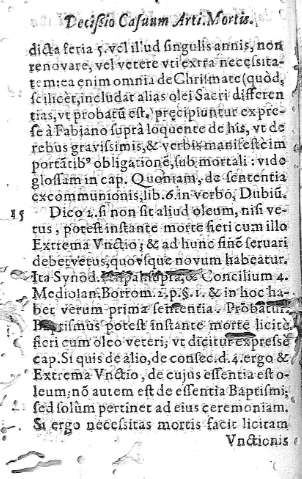 Decissio Casuum Arti. Mortis.
dicta feria 5. vel illud singulis annis, non
renovare, vel vetere vti extra necessita-
tem: ea enim omnia de Chrismate (quòd,
scilicet, includat alias olei Sacri differen
tias, vt probatũ est, pręcipiuntur expre-
se à Fabiano suprà loquente de his, vt de
rebus gravissimis, & verbis manifestè im
portãtibꝰ obligationẽ, sub mortali: vide
glossam in cap. Quoniam, de sententia
excommunionis, lib. 6. in verbo, Dubiũ.
15 Dico 2. si non sit aliud oleum, nisi ve-
tus, potest instante morte fieri cum illo
Extrema Vnctio; & ad hunc finẽ servari
debet vetus, quovsque novum habeatur.
Ita Synod. supra, & Concilium 4.
Mediolan. Borrom. 2. p. §. 1. & in hoc ha-
bet verum prima sententia. Probatur.
Baptismus potest instante morte licitè
fieri cum oleo veteri, vt dicitur expresse
cap. Si quis de alio, de consec. d. 4. ergo &
Extrema Vnctio, de cujus essentia est o-
leum; nõ autem est de essentia Baptismi;
sed solùm pertinet ad eius ceremoniam.
Si ergo necessitas mortis facit licitam
Vnctionis